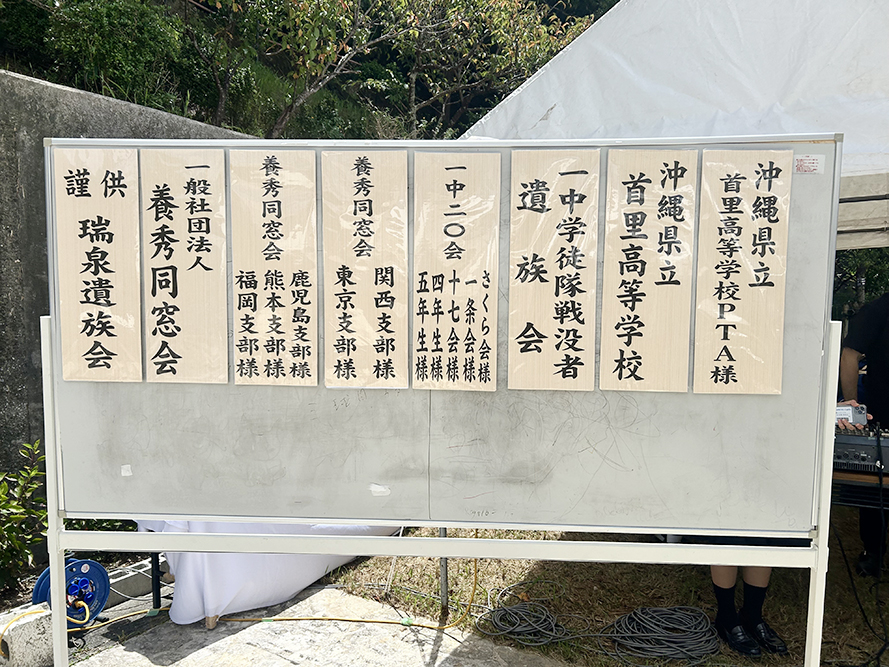 沖縄県立
首里高等学校PTA様
沖縄県立
首里高等学校
一中学徒隊戦没者
遺族会
一中二〇会
さくら会様
一条会様
十七会様
四年生様
五年生様
養秀同窓会
関西支部様
東京支部様
養秀同窓会
鹿児島支部様
熊本支部様
福岡支部様
一般社団法人
養秀同窓会
供
謹
瑞泉遺族会